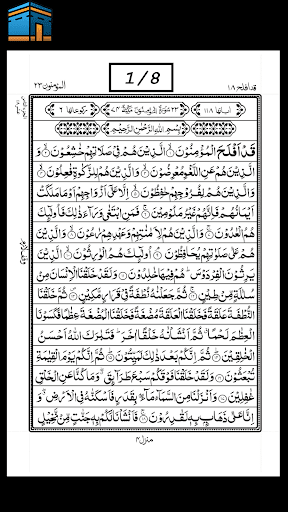 قد افلح ١٨
المؤمنون ٢٣
1/8
اٰیاتها ١١٨
٢٣ سُوْرَةُ الْمُؤْمِنُوْنَ مَكِّیَّةٌ ٧٤
رکوعاتها ٦
بِسْمِ اللهِ الرَّحْمٰنِ الرَّحِيْمِ
قَدْ اَفْلَحَ الْمُؤْمِنُوْنَ ۙ۝ الَّذِيْنَ هُمْ فِيْ صَلَاتِهِمْ خٰشِعُوْنَ ۙ۝ وَ
الَّذِيْنَ هُمْ عَنِ اللَّغْوِ مُعْرِضُوْنَ ۙ۝ وَالَّذِيْنَ هُمْ لِلزَّكٰوةِ فٰعِلُوْنَ ۙ۝ وَ
الَّذِيْنَ هُمْ لِفُرُوْجِهِمْ حٰفِظُوْنَ ۙ۝ اِلَّا عَلٰٓى اَزْوَاجِهِمْ اَوْ مَا مَلَكَتْ
اَيْمَانُهُمْ فَاِنَّهُمْ غَيْرُ مَلُوْمِيْنَ ۚ۝ فَمَنِ ابْتَغٰى وَرَآءَ ذٰلِكَ فَاُولٰٓئِكَ
هُمُ الْعٰدُوْنَ ۚ۝ وَالَّذِيْنَ هُمْ لِاَمٰنٰتِهِمْ وَعَهْدِهِمْ رٰعُوْنَ ۙ۝ وَ
الَّذِيْنَ هُمْ عَلٰى صَلَوٰتِهِمْ يُحَافِظُوْنَ ۘ۝ اُولٰٓئِكَ هُمُ الْوٰرِثُوْنَ ۙ۝ الَّذِيْنَ
يَرِثُوْنَ الْفِرْدَوْسَ ؕ هُمْ فِيْهَا خٰلِدُوْنَ ۝ وَلَقَدْ خَلَقْنَا الْاِنْسَانَ مِنْ
سُلٰلَةٍ مِّنْ طِيْنٍ ۚ۝ ثُمَّ جَعَلْنٰهُ نُطْفَةً فِيْ قَرَارٍ مَّكِيْنٍ ۪۝ ثُمَّ خَلَقْنَا
النُّطْفَةَ عَلَقَةً فَخَلَقْنَا الْعَلَقَةَ مُضْغَةً فَخَلَقْنَا الْمُضْغَةَ عِظٰمًا فَكَسَوْنَا
الْعِظٰمَ لَحْمًا ۗ ثُمَّ اَنْشَاْنٰهُ خَلْقًا اٰخَرَ ؕ فَتَبٰرَكَ اللهُ اَحْسَنُ
الْخٰلِقِيْنَ ؕ۝ ثُمَّ اِنَّكُمْ بَعْدَ ذٰلِكَ لَمَيِّتُوْنَ ؕ۝ ثُمَّ اِنَّكُمْ يَوْمَ الْقِيٰمَةِ
تُبْعَثُوْنَ ۝ وَلَقَدْ خَلَقْنَا فَوْقَكُمْ سَبْعَ طَرَآئِقَ ۖ وَمَا كُنَّا عَنِ الْخَلْقِ
غٰفِلِيْنَ ۝ وَاَنْزَلْنَا مِنَ السَّمَآءِ مَآءًۢ بِقَدَرٍ فَاَسْكَنّٰهُ فِي الْاَرْضِ ۖ وَ
اِنَّا عَلٰى ذَهَابٍۭ بِهٖ لَقٰدِرُوْنَ ۚ۝ فَاَنْشَاْنَا لَكُمْ بِهٖ جَنّٰتٍ مِّنْ نَّخِيْلٍ
منزل ٤